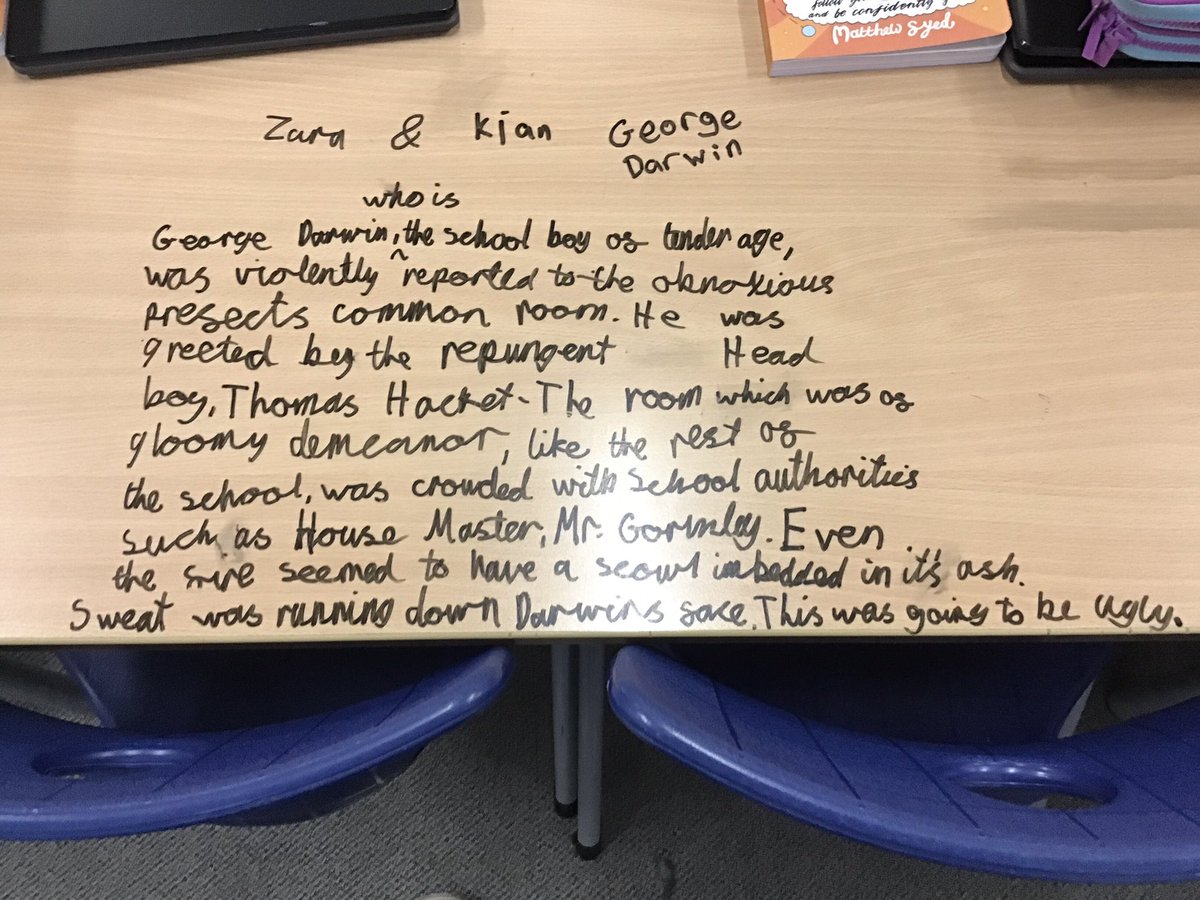 follow your
and be confidently y
Matthew Syed
Zara & Kian George
Darwin
who is
George Darwin, the school boy of tender age,
was violently ^ reported to the obnoxious
prefects common room. He was
greeted by the repungent Head
boy, Thomas Hacket. The room which was of
gloomy demeanor, like the rest of
the school, was crowded with school authorities
such as House Master, Mr. Gormley. Even
the fire seemed to have a scowl imbedded in it's ash.
Sweat was running down Darwins face. This was going to be ugly.